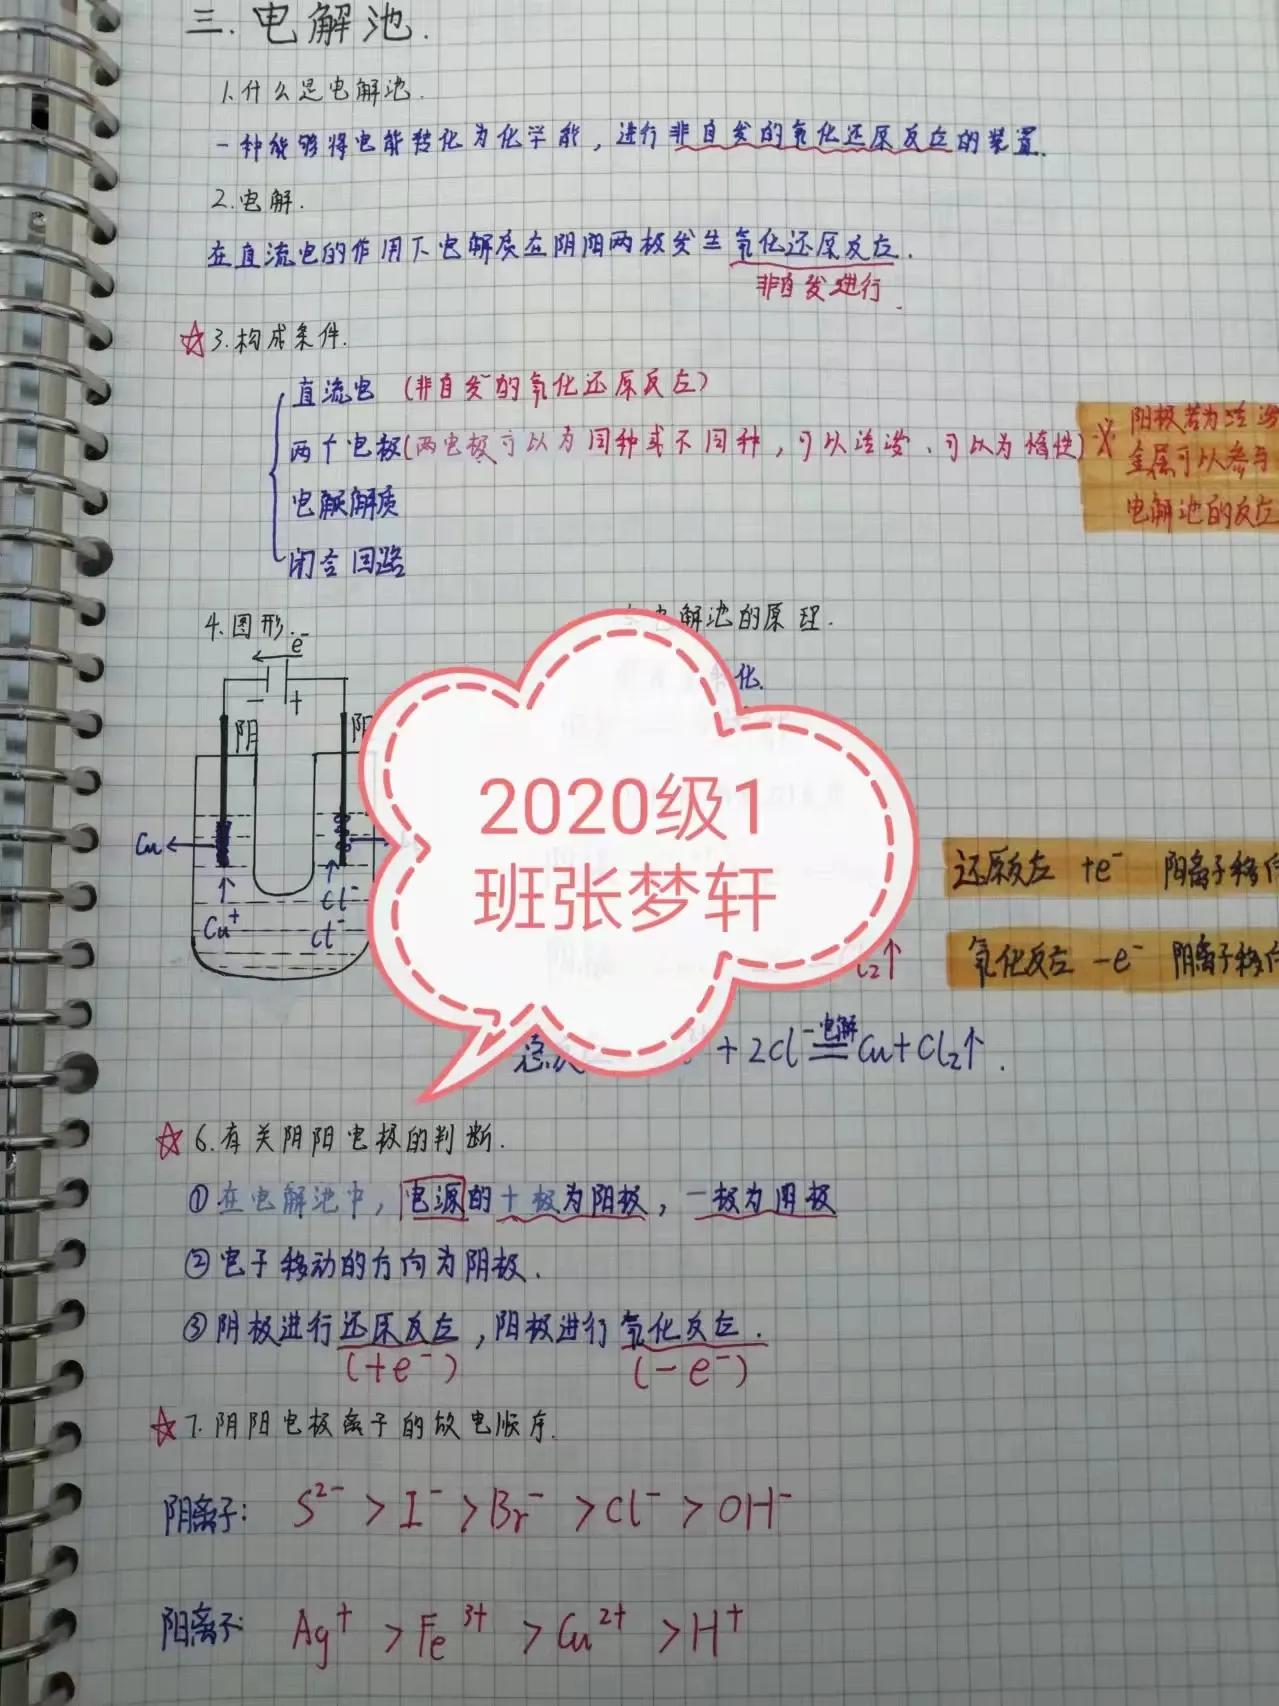 三.电解池.
1.什么是电解池.
一种能够将电能转化为化学能，进行非自发的氧化还原反应的装置.
2.电解.
在直流电的作用下电解质在阴阳两极发生氧化还原反应.
非自发进行.
☆3.构成条件.
直流电 (非自发的氧化还原反应)
两个电极(两电极可以为同种或不同种，可以活泼、可以为惰性)
阳极若为活泼
金属可以参与
电解池的反应
电解质
闭合回路
4.图形.
电解池的原理.
e⁻
化.
- +
阴
Cu
Cu⁺
Cl⁻
Cl⁻
2020级1
班张梦轩
还原反应 +e⁻ 阳离子移向
氧化反应 -e⁻ 阴离子移向
↑
+2Cl⁻ 电解 Cu+Cl₂↑.
☆6.有关阴阳电极的判断.
①在电解池中，电源的+极为阳极，一极为阴极
②电子移动的方向为阴极.
③阴极进行还原反应，阳极进行氧化反应.
(+e⁻) (-e⁻)
☆7.阴阳电极离子的放电顺序.
阴离子: S²⁻ > I⁻ > Br⁻ > Cl⁻ > OH⁻
阳离子: Ag⁺ > Fe³⁺ > Cu²⁺ > H⁺